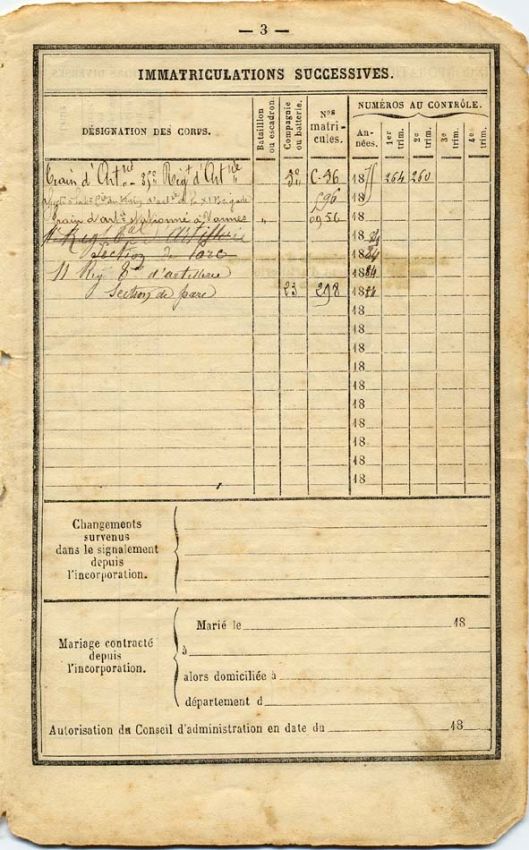 — 3 —
IMMATRICULATIONS SUCCESSIVES.
DÉSIGNATION DES CORPS.
Bataillion ou escadron.
Compagnie ou batterie.
Nos matri- cules.
NUMÉROS AU CONTRÔLE.
An- nées.
1er trim.
2e trim.
3e trim.
4e trim.
Train d'Art rie 35e Rigt d'Art rie 3e C-96 1875 264 260
596
train d'art ie stationné à Vannes " 0956 18
d'Artillerie 18
Section de Parc 18
11 Rig d'artillerie 1884
Section de parc 23 298 1884
18
18
18
18
18
18
18
18
18
18
Changements
survenus
dans le signalement
depuis
l'incorporation.
Mariage contracté
depuis
l'incorporation.
Marié le 18
à
alors domiciliée à
département d
Autorisation du Conseil d'administration en date du 18